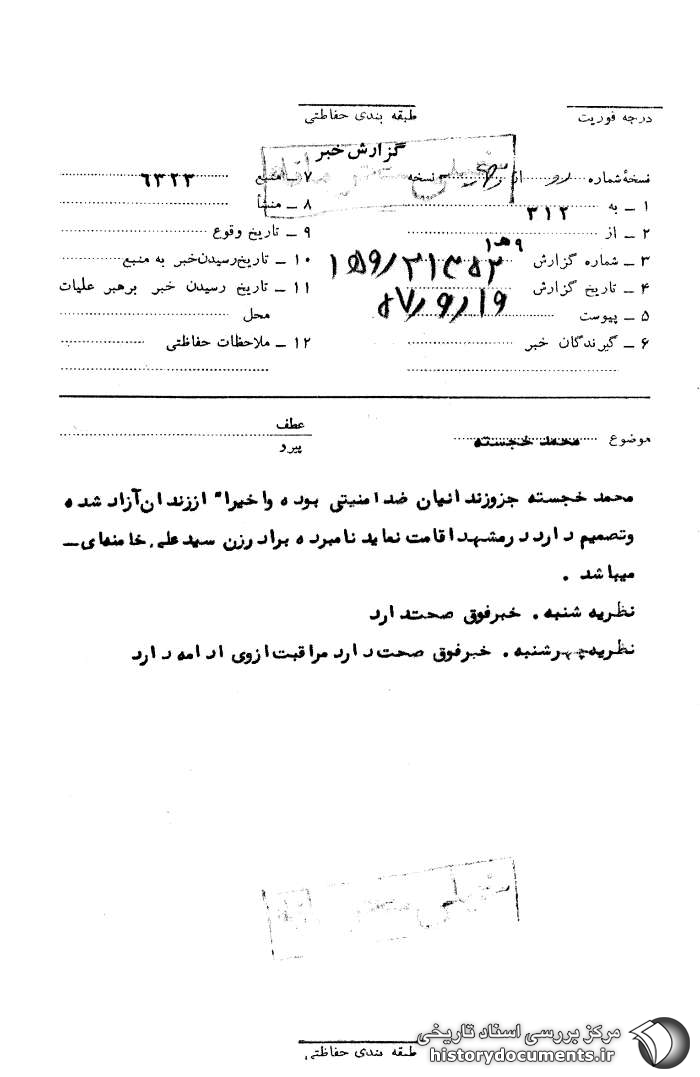 درجه فوریت
طبقه بندی حفاظتی
گزارش خبر
نسخهٔ شماره از نسخه
۱ ــ به ۳۱۲
۲ ــ از ۹هـ۱
۳ ــ شماره گزارش
۴ ــ تاریخ گزارش ۵۷/۹/۱۹
۵ ــ پیوست
۶ ــ گیرندگان خبر
۷ ــ منبع ۶۳۲۳
۸ ــ منشأ
۹ ــ تاریخ وقوع
۱۰ ــ تاریخ رسیدن خبر به منبع
۱۱ ــ تاریخ رسیدن خبر برهبر عملیات
محل
۱۲ ــ ملاحظات حفاظتی
موضوع محمد خجسته
عطف
پیرو
محمد خجسته جزوزندانیان ضدامنیتی بوده واخیرا" اززندان آزاد شده
وتصمیم دارددرمشهداقامت نماید نامبرده برادرزن سیدعلی خامنه‌ای ــ
میباشد .
نظریه شنبه . خبرفوق صحت دارد
نظریه چهرشنبه . خبرفوق صحت دارد مراقبت ازوی ادامه دارد
طبقه بندی حفاظتی
مرکز بررسی اسناد تاریخی
historydocuments.ir